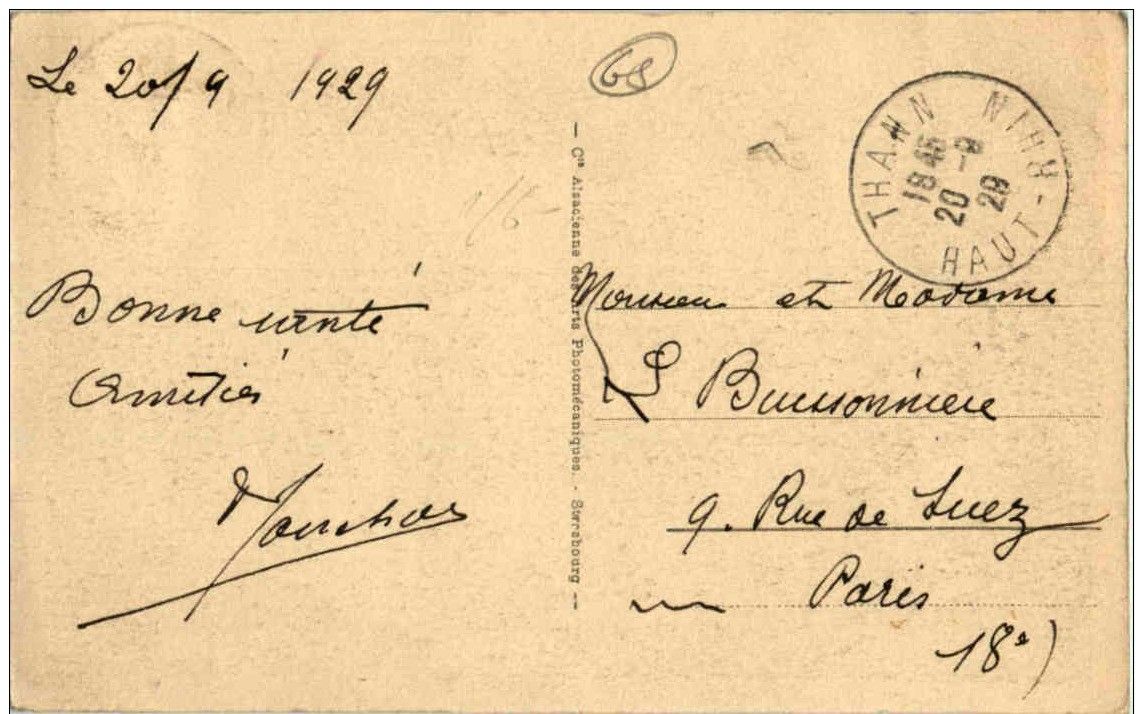 Le 20/9 1929
Bonne santé
Amitiés
68
1/6-
THANN
HAUT-RHIN
1845
20-9
29
— Cie Alsacienne des Arts Photomécaniques. - Strasbourg —
Monsieur et Madame
Buissonnière
9. Rue de Suez
Paris
18e)